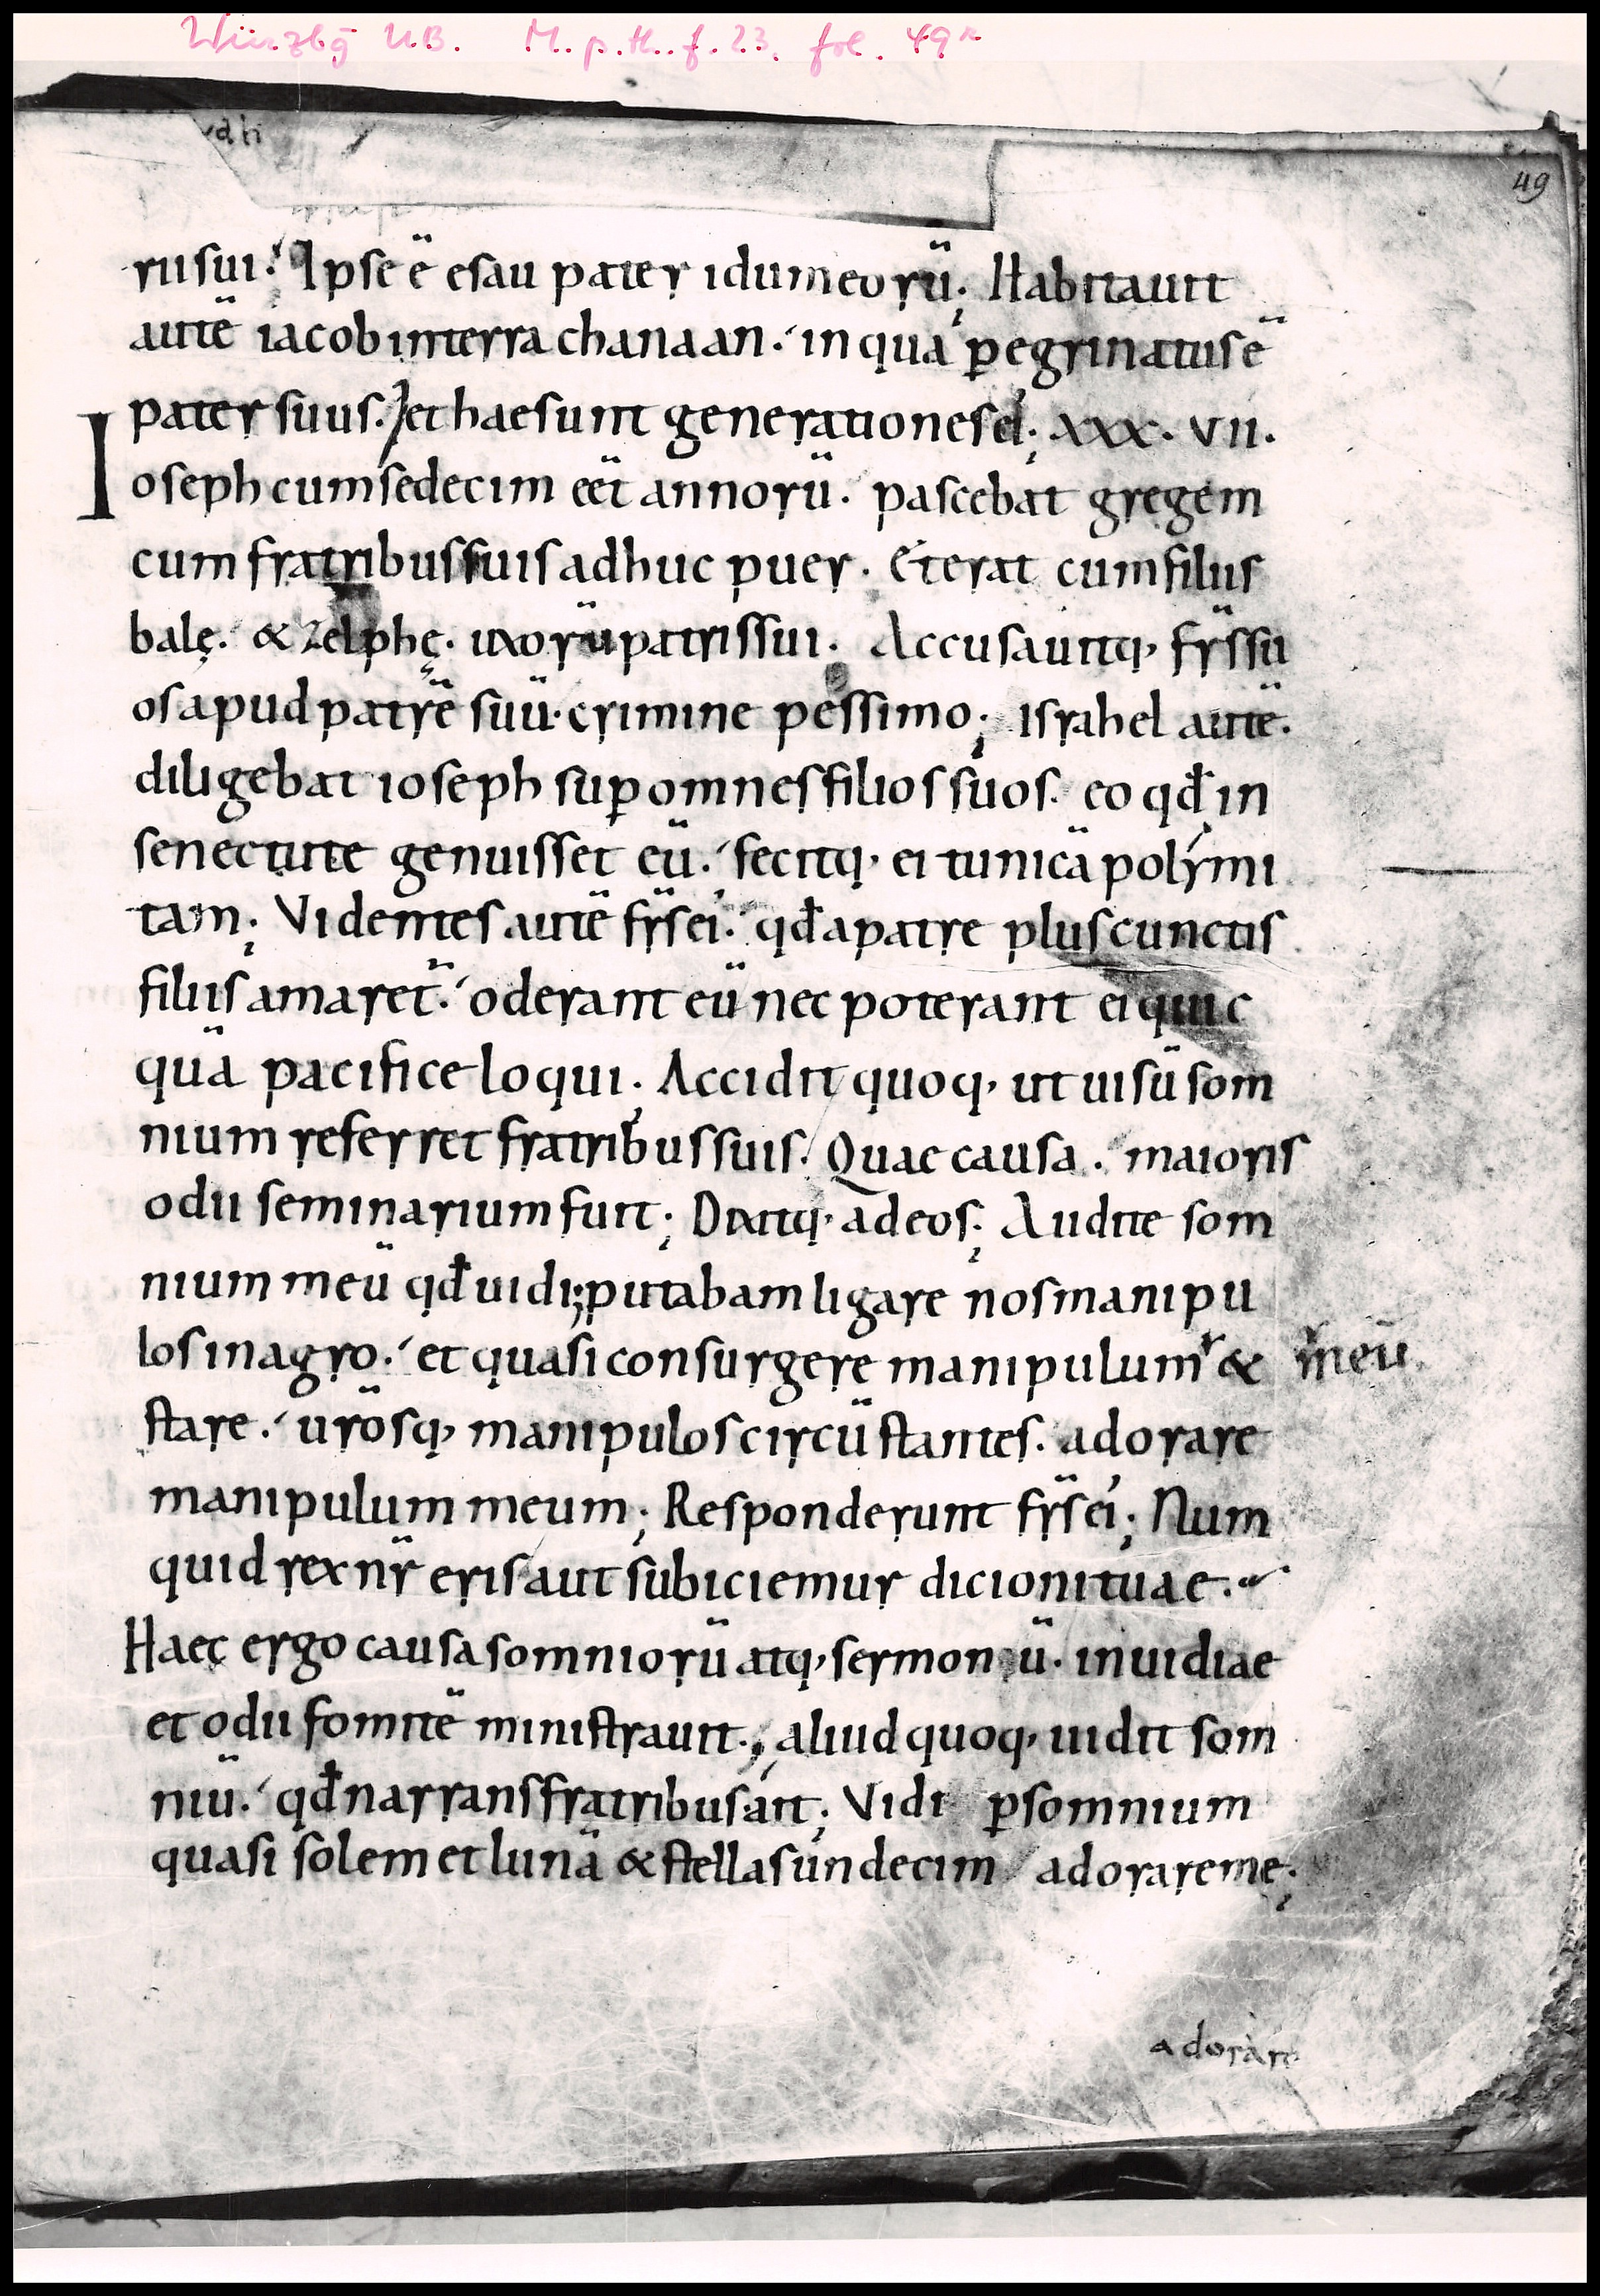 Würzbg UB. M. p. th. f. 23. fol. 49r
49
rii sui. Ipse ē esau pater idumeorū; Habitauit
autē iacob in terra chanaan. in qua p̱egrinatus ē
pater suus. et hae sunt generationes ei; xxx. vii.
Ioseph cum sedecim eēt annorū. pascebat gregem
cum fratribus suis adhuc puer. Et erat cum filiis
balę. & zelphę. uxorū patris sui. Accusauitq, fr̄s su
os apud patrē suū. crimine pessimo; israhel autē.
diligebat ioseph sup̱ omnes filios suos. eo qđ in
senectute genuisset eū. fecitq, ei tunicā polymi
tam; Videntes autē fr̄s ei. qđ a patre plus cunctis
filiis amaret̄. oderant eū nec poterant ei quic
quā pacifice loqui. Accidit quoq, ut uisū som
nium referret fratribus suis. Quae causa. maioris
odii seminarium fuit; Dixitq, ad eos; Audite som
nium meū qđ uidi; putabam ligare nos manipu
los in agro. et quasi consurgere manipulum &
meū
stare. ur̄osq, manipulos circū stantes. adorare
manipulum meum; Responderunt fr̄s ei; Num
quid rex nr̄ eris aut subiciemur dicioni tuae.
Haec ergo causa somniorū atq, sermonū. inuidiae
et odii fomitē ministrauit., aliud quoq, uidit som
niū. qđ narrans fratribus ait; Vidi p̱ somnium
quasi solem et lunā & stellas undecim adorare me;
adorare